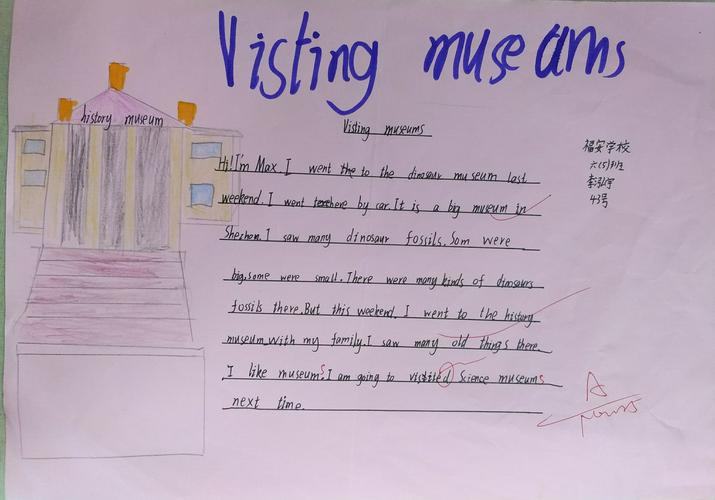 Visting museums
history museum
Visting museums
福安学校
六(5)班
43号
Hi! I'm Max. I went the to the dinosaur museum last
weekend. I went there by car. It is a big museum in
Shezhen. I saw many dinosaur fossils. Som were
big, some were small. There were many kinds of dinosaurs
fossils there. But this weekend, I went to the history
museum with my family. I saw many old things there.
I like museums. I am going to visited Science museums
next time.
A